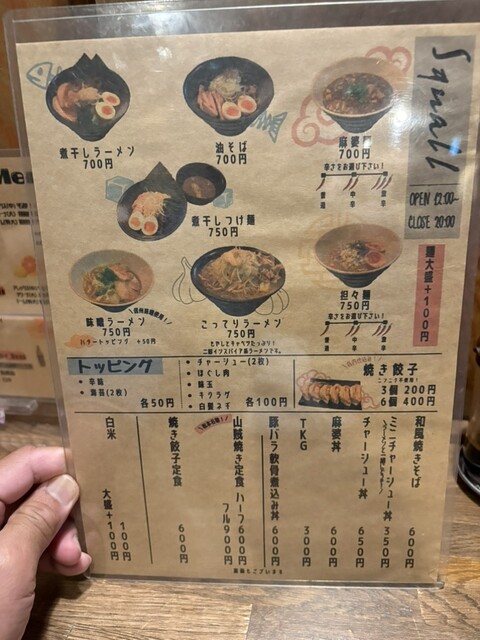 Squall
OPEN 12:00~
CLOSE 20:00
煮干しラーメン
700円
油そば
700円
700円
辛さをお選び下さい!
普通
中辛
激辛
煮干しつけ麺
750円
麺大盛+100円
味噌ラーメン
750円
バタートッピング +50円
こってりラーメン
750円
もやしてキャベツたっぷり!
二郎インスパイア系ラーメンです。
担々麺
750円
辛さをお選び下さい!
普通
中辛
激辛
トッピング
・辛麺
・海苔(2枚)
各50円
・チャーシュー(2枚)
・ほぐし肉
・味玉
・白髪ネギ
各100円
焼き餃子
3個 200円
6個 400円
和風焼きそば
600円
ミニチャーシュー丼
350円
チャーシュー丼
650円
麻婆丼
600円
TKG
300円
豚バラ軟骨煮込み丼
600円
山賊焼き定食
ハーフ600円
フル900円
焼き餃子定食
600円
白米
100円
大盛+100円
Men